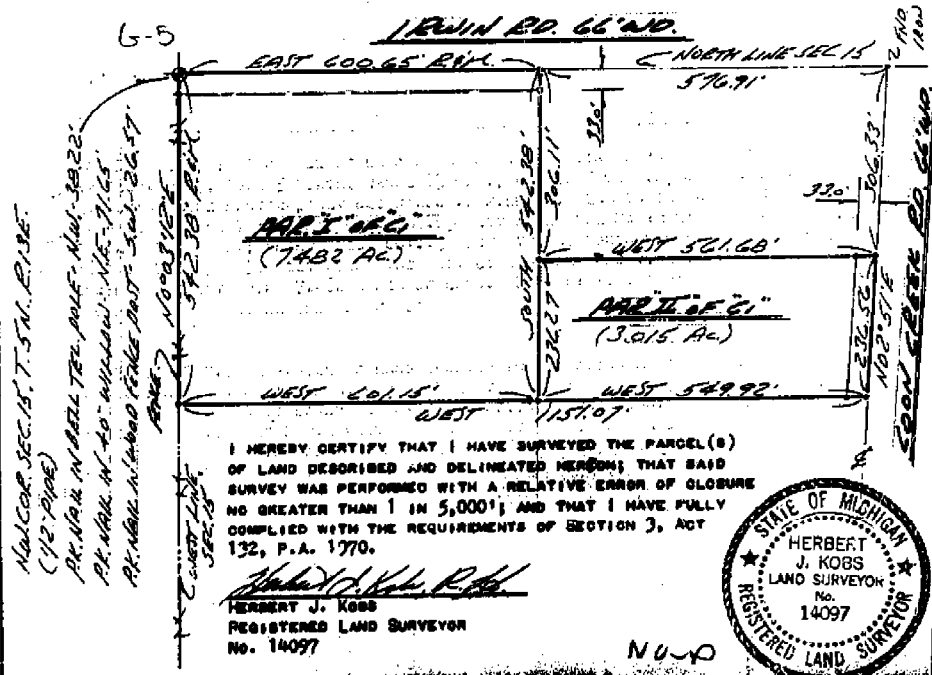 G-5
IRWIN RD. 66' WD.
EAST 600.65' R&M.
NORTH LINE SEC 15
576.91'
2" FND. IRON
COON CREEK RD 66' WD.
N.W. COR. SEC. 15, T. 5 N. R. 13 E.
(1/2" PIPE)
P.K. NAIL IN BELL TEL. POLE - N.W. - 38.22'
P.K. NAIL IN 40" WILLOW - N.E. - 71.65'
P.K. NAIL IN WOOD FENCE POST - S.W. - 26.57'
N00°03'12"E
542.38' R&M
WEST LINE
SEC. 15
33.0'
PAR "I" OF "C1"
(7.482 AC)
SOUTH 542.38'
306.11'
236.27'
33.0'
306.33'
WEST 561.68'
PAR "II" OF "C1"
(3.015 AC)
236.56'
N02°51'E
WEST 601.15'
WEST 549.92'
WEST 1151.07'
I HEREBY CERTIFY THAT I HAVE SURVEYED THE PARCEL(S)
OF LAND DESCRIBED AND DELINEATED HEREON; THAT SAID
SURVEY WAS PERFORMED WITH A RELATIVE ERROR OF CLOSURE
NO GREATER THAN 1 IN 5,000'; AND THAT I HAVE FULLY
COMPLIED WITH THE REQUIREMENTS OF SECTION 3, ACT
132, P.A. 1970.
HERBERT J. KOBS
REGISTERED LAND SURVEYOR
No. 14097
STATE OF MICHIGAN
HERBERT
J. KOBS
LAND SURVEYOR
No.
14097
REGISTERED LAND SURVEYOR